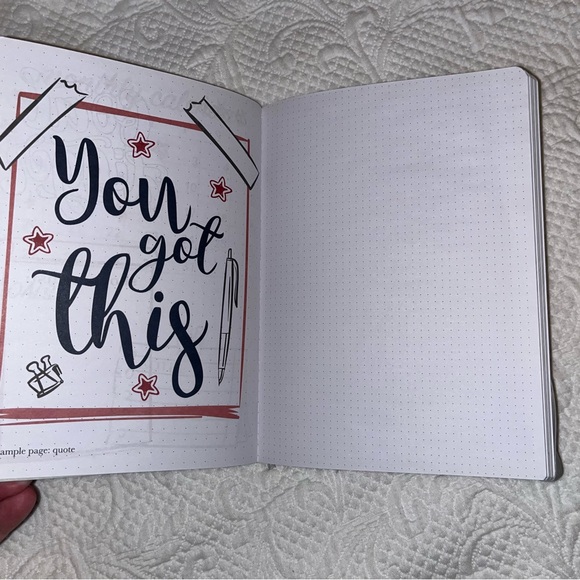 You
got
this
ample page: quote